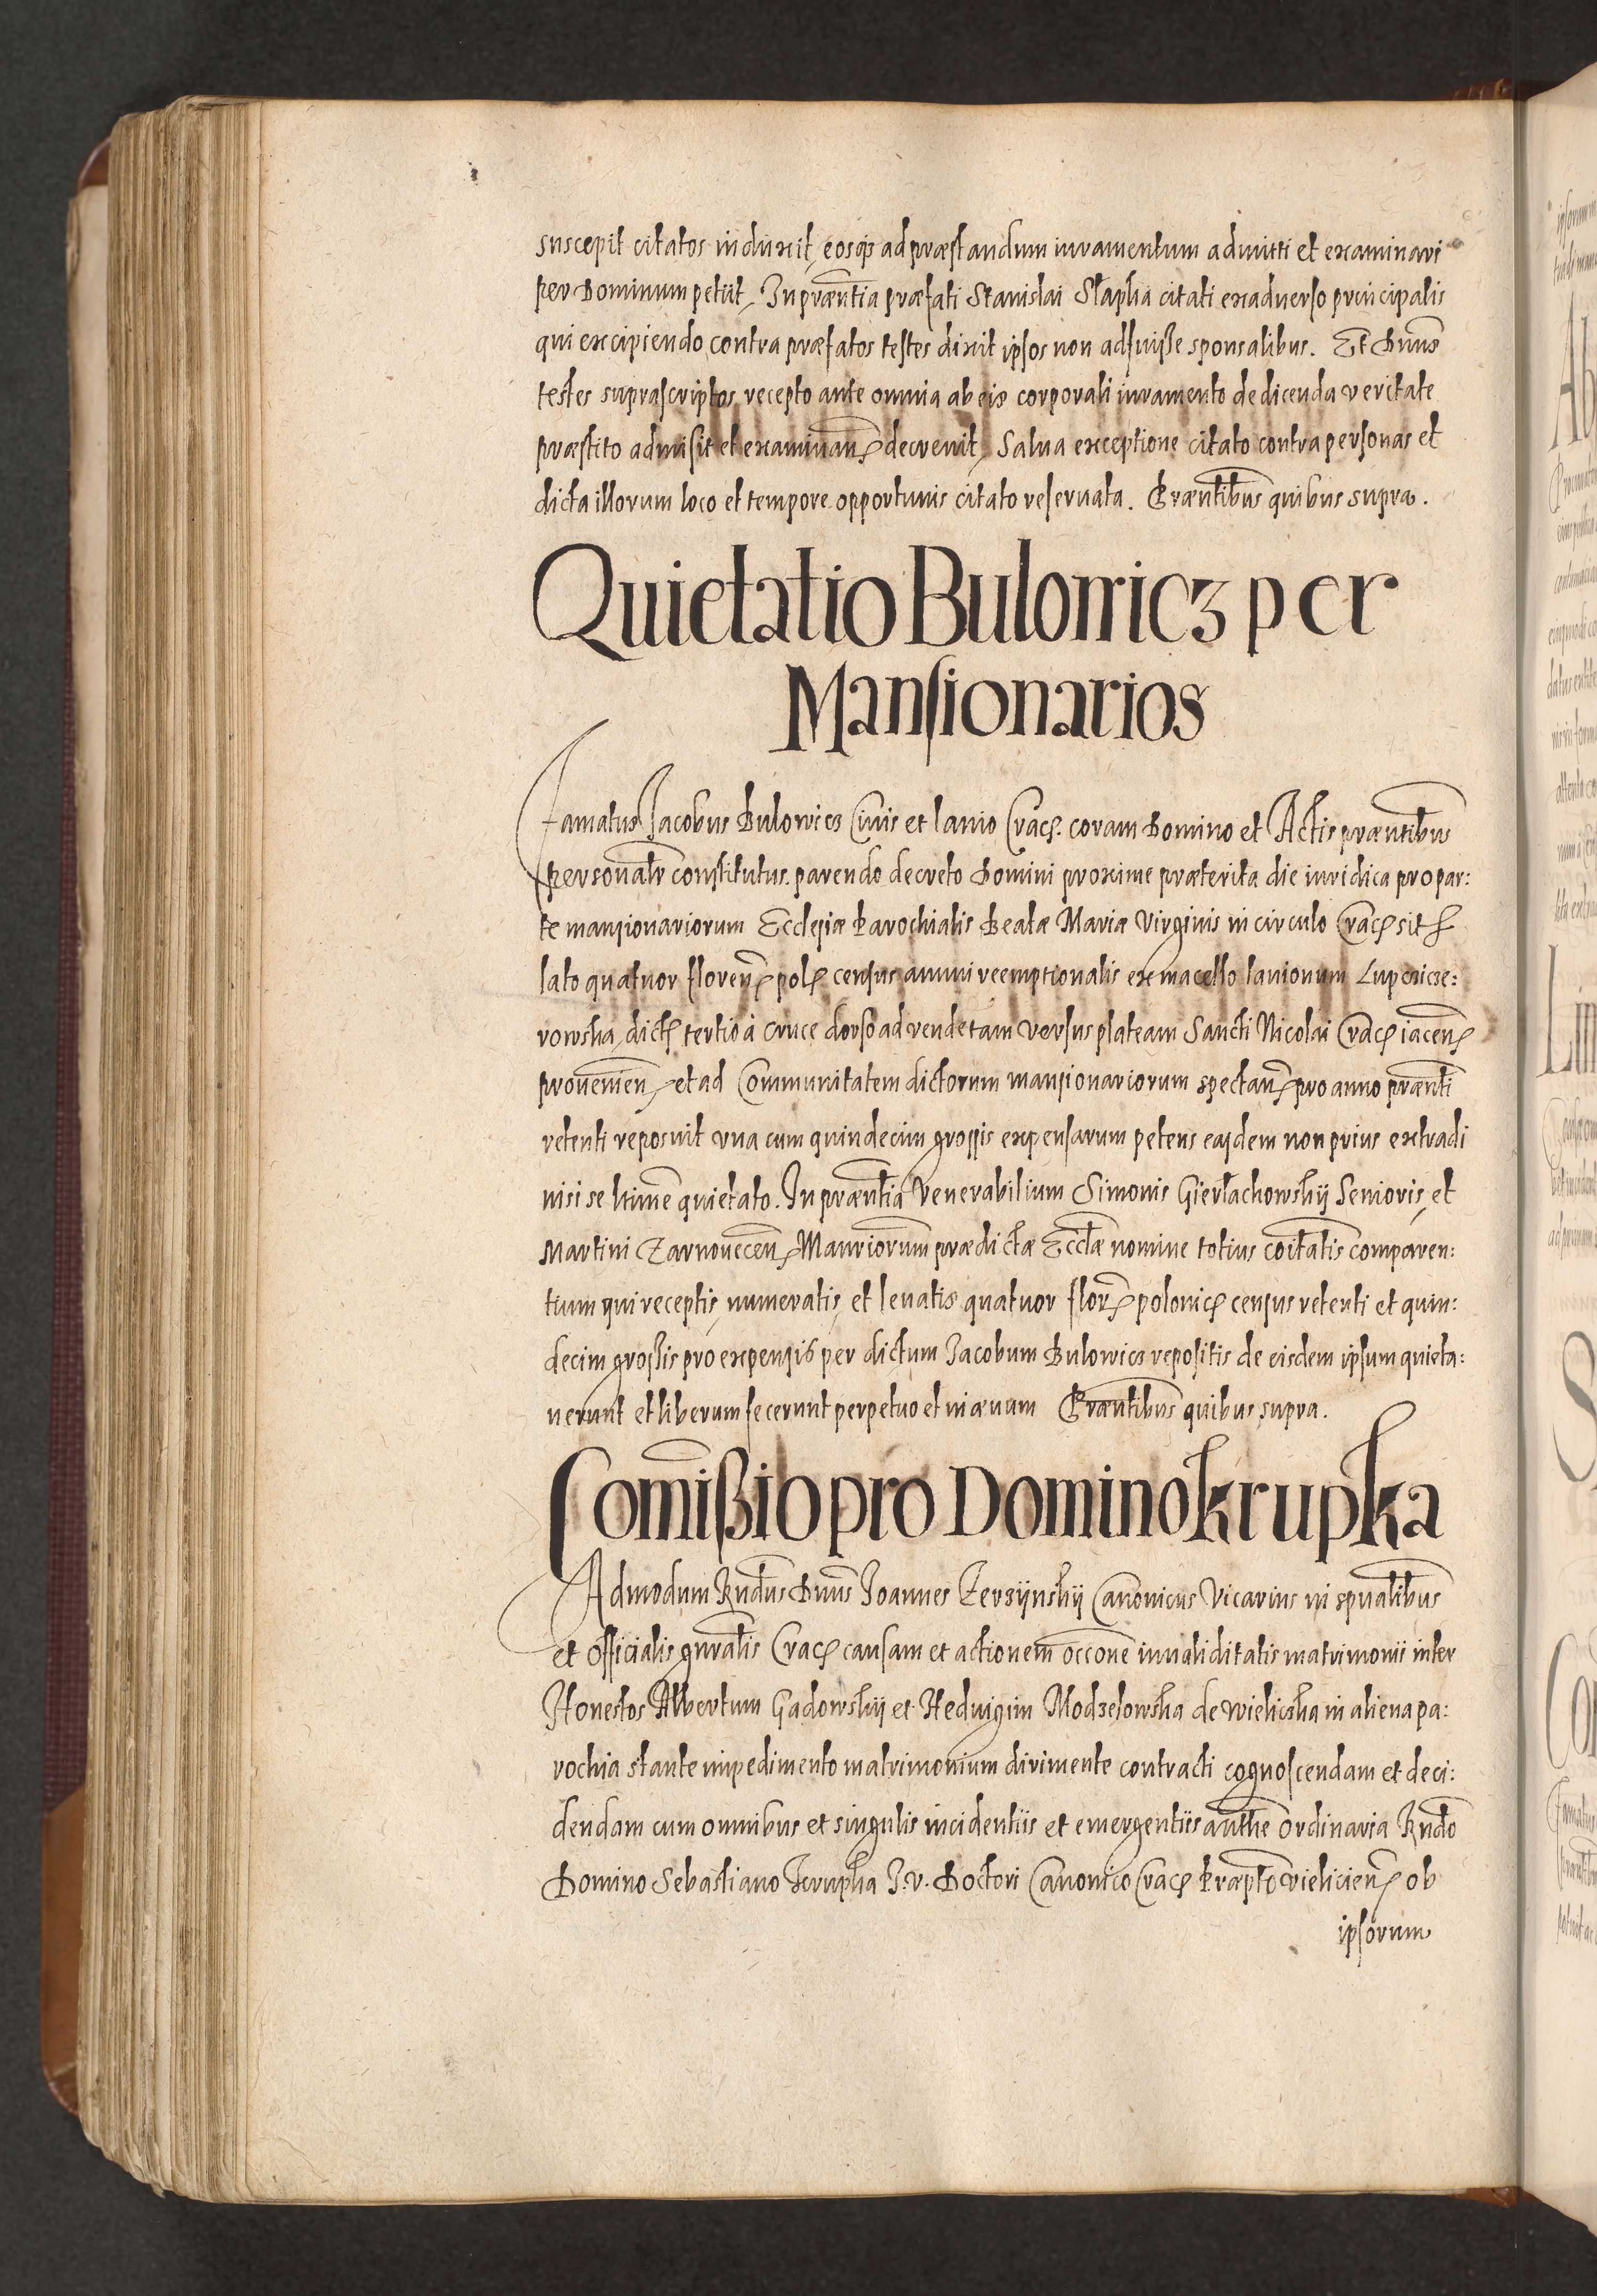 suscepit citatos induxit, eosq3 ad præstandum iuramentum admitti et examinari
per Dominum petiit, In præntia præfati Stanislai Slapka citati exaduerso principalis
qui excipiendo contra præfatos testes dixit ipsos non adfuisse sponsalibus. Et Dnus
testes suprascriptos recepto ante omnia ab eis corporali iuramento de dicenda veritate
præstito admisit et examinan decreuit, Salua exceptione citato contra personas et
dicta illorum loco et tempore opportunis citato reseruata. Præntibus quibus supra.
Quietatio Bulowicz per
Mansionarios
Famatus Jacobus Bulowicz Ciuis et lanio Crac. coram Domino et Actis præntibus
personalr constitutus parendo decreto Domini proxime præterita die iuridica pro par:
te mansionariorum Ecclesiæ Parochialis Beatæ Mariæ Virginis in circulo Crac sit
lato quatuor floren pol census annui reemptionalis ex macello lanionum
rowska dict tertio à cruce dorso ad vendetam versus plateam Sancti Nicolai Crac iacen
prouenien, et ad Communitatem dictorum mansionariorum spectan pro anno prænti
retenti reposuit vna cum quindecim grossis expensarum petens easdem non prius extradi
nisi se ltime quietato. In præntia Venerabilium Simonis Gierlachowskij Senioris, et
Martini Zarnouecen Manriorum prædictæ Ecclæ nomine totius coitatis comparen:
tium qui receptis, numeratis, et leuatis quatuor flor polonic census retenti et quin:
decim grossis pro expensis per dictum Jacobum Bulowicz repositis de eisdem ipsum quieta:
uerunt et liberum fecerunt perpetuo et in æuum Præntibus quibus supra.
Comißio pro Domino Krupka
Admodum Rndus Dnus Joannes Zerzijnskij Canonicus Vicarius in spualibus
et Officialis gnralis Crac causam et actionem occone inualiditatis matrimonii inter
Honestos Albertum Gadowskij et Heduigim Modzelowska de Wielicska in aliena pa:
rochia stante impedimento matrimonium dirimente contracti cognoscendam et deci:
dendam cum omnibus et singulis incidentiis et emergentiis autthe Ordinaria Rndo
Domino Sebastiano Krupka J.V. Doctori Canonico Crac Præpto Vielicien ob
ipsorum